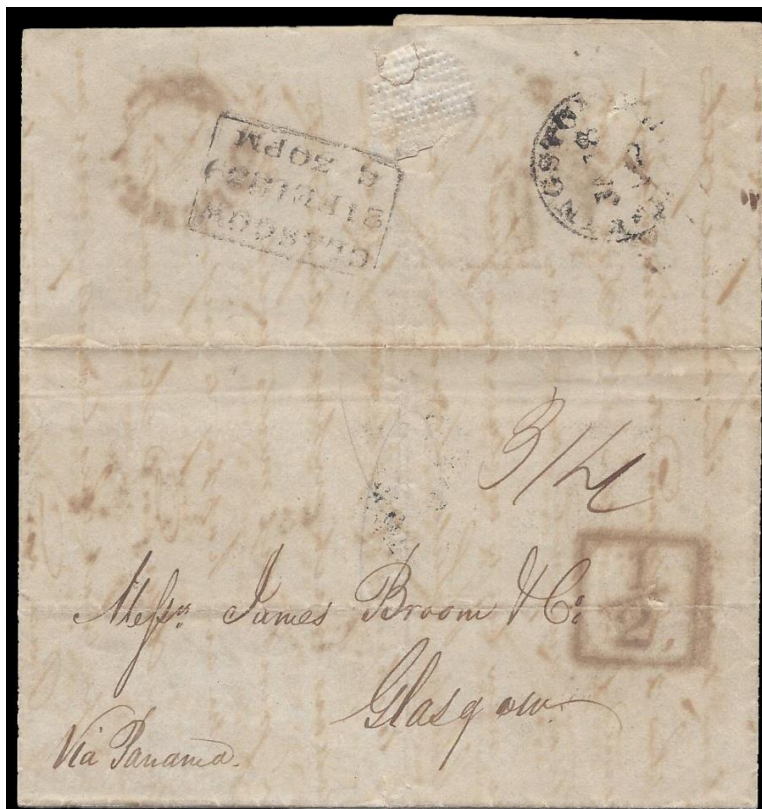 GLASGOW
21 FE 1839
8 30PM
KINGSTON
3/4
1/2
Messrs. James Broom & Co:
Glasgow
Via Panama.